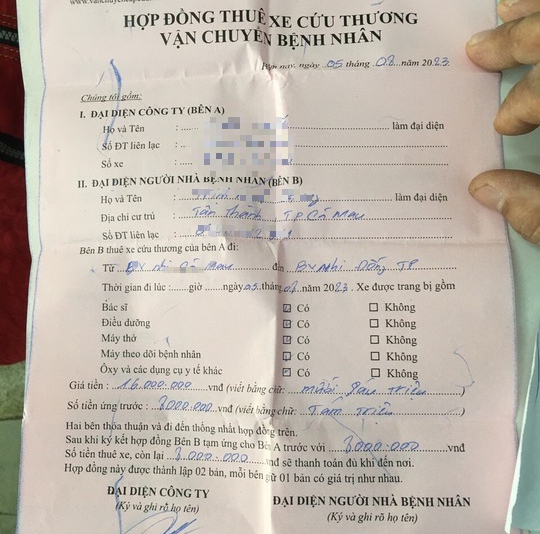 HỢP ĐỒNG THUÊ XE CỨU THƯƠNG
VẬN CHUYỂN BỆNH NHÂN
nay, ngày 05 tháng 08 năm 2023.
Chúng tôi gồm:
I. ĐẠI DIỆN CÔNG TY (BÊN A)
Họ và Tên : làm đại diện
Số ĐT liên lạc :
Số xe :
II. ĐẠI DIỆN NGƯỜI NHÀ BỆNH NHÂN (BÊN B)
Họ và Tên : làm đại diện
Địa chỉ cư trú : Tân Thành TP Cà Mau
Số ĐT liên lạc :
Bên B thuê xe cứu thương của bên A đi:
Từ BV nhi Cà Mau đến BV Nhi Đồng TP
Thời gian đi lúc: giờ ngày 05 tháng 08 năm 2023. Xe được trang bị gồm
Bác sĩ Có Không
Điều dưỡng Có Không
Máy thở Có Không
Máy theo dõi bệnh nhân Có Không
Ôxy và các dụng cụ y tế khác Có Không
Giá tiền : 16.000.000 vnđ (viết bằng chữ: mười sáu triệu )
Số tiền ứng trước : 8000.000 vnđ (viết bằng chữ: Tám Triệu )
Hai bên thỏa thuận và đi đến thống nhất hợp đồng trên.
Sau khi ký kết hợp đồng Bên B tạm ứng cho Bên A trước với 8000.000 vnđ
Số tiền thuê xe, còn lại 8.000.000 vnđ sẽ thanh toán đủ khi đến nơi.
Hợp đồng này được thành lập 02 bản, mỗi bên giữ 01 bản có giá trị như nhau.
ĐẠI DIỆN CÔNG TY ĐẠI DIỆN NGƯỜI NHÀ BỆNH NHÂN
(Ký và ghi rõ họ tên) (Ký và ghi rõ họ tên)